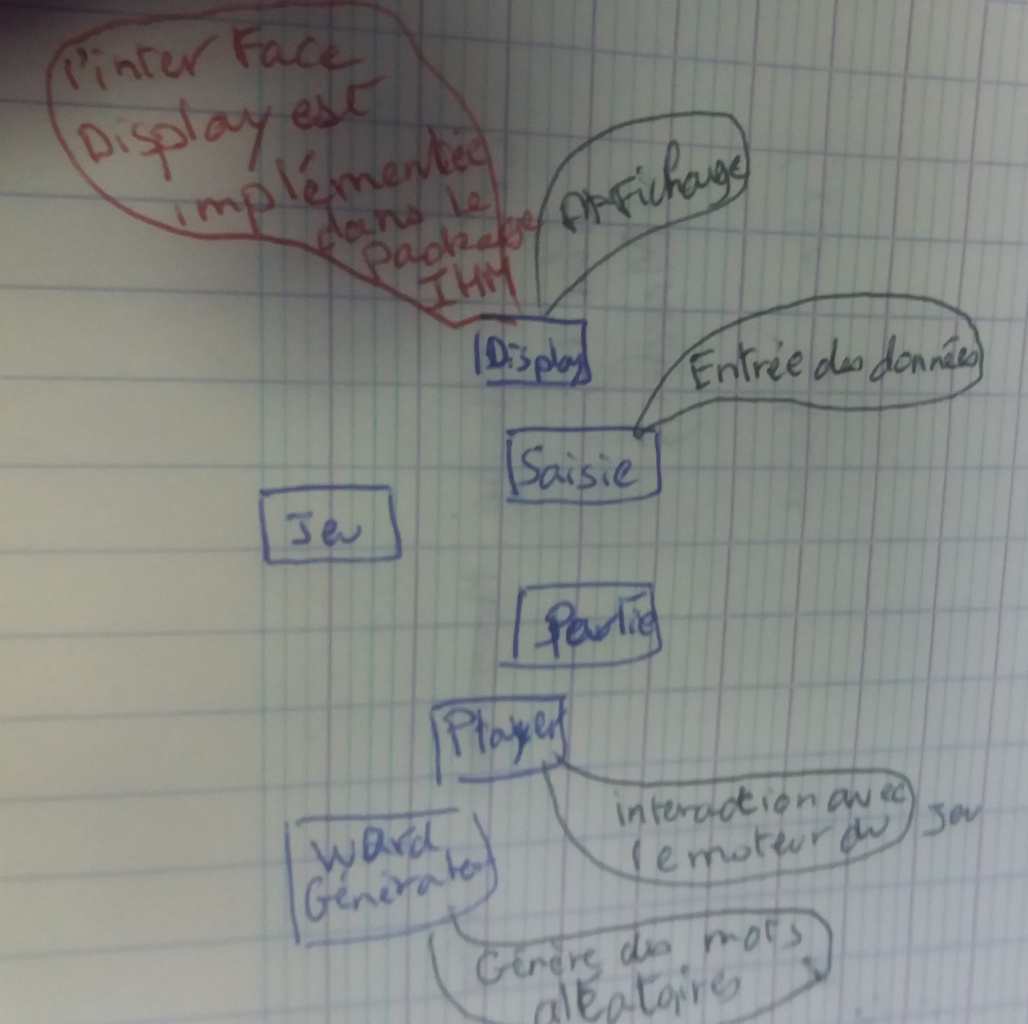 l'interface
Display est
implémentée
dans le
package
IHM
Affichage
Display
Entrée des données
Saisie
Jeu
Partie
Player
interaction avec
le moteur du Jeu
Word
Générator
Génère des mots
aléatoires